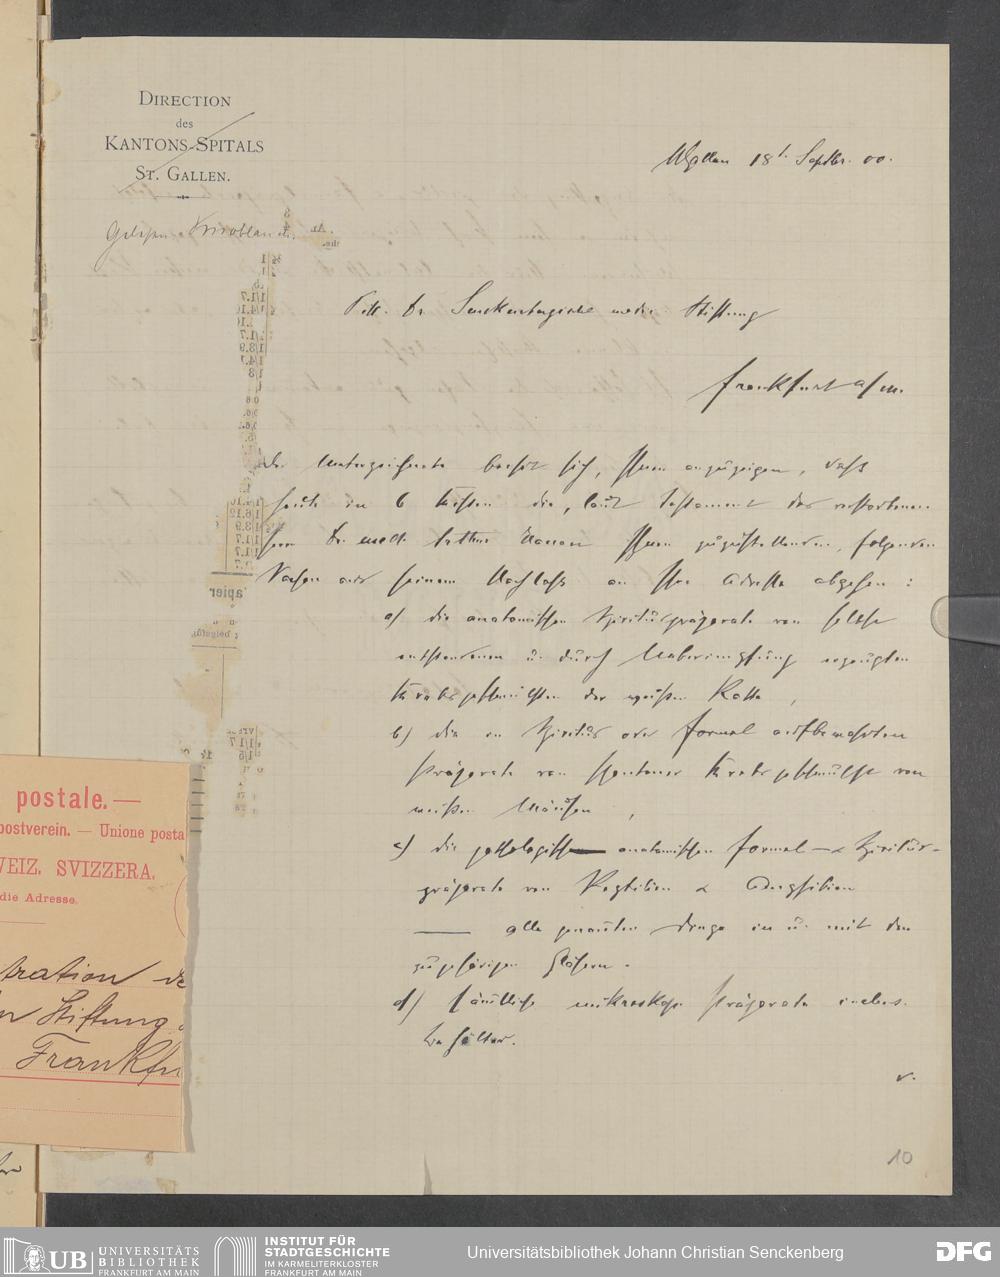 DIRECTION
des
KANTONS-SPITALS
ST. GALLEN.
St. Gallen 18t. Septbr. 00.
Dr. Senckenbergische Stiftung
Frankfurt a/m.
Der Unterzeichnete beehrt sich, Ihnen anzuzeigen, dass
heute in 6 Kisten die, laut Testament des verstorbenen
Herrn Dr. med. Arthur Hanau Ihnen zuzustellenden, folgenden
Sachen aus seinem Nachlass an Ihre Adresse abgehen:
a) die anatomischen Spirituspräparate von selbst
entstandenen u. durch Ueberimpfung erzeugten
Krebsgeschwülsten der weißen Ratte,
b) die in Spiritus oder Formol aufbewahrten
Präparate von spontaner Krebsgeschwülste von
weißen Mäusen,
c) die pathologisch anatomischen Formol- & Spiritus-
präparate von Reptilien & Amphibien
alle genannten Dinge in u. mit den
zugehörigen Gläsern.
d) sämtliche mikroskop. Präparate inclus.
Behälter.
v.
10
apier
postale.—
postverein. — Unione posta
VEIZ. SVIZZERA.
die Adresse.
tration de
n Stiftung
Frankfu
UB
UNIVERSITÄTS
BIBLIOTHEK
FRANKFURT AM MAIN
INSTITUT FÜR
STADTGESCHICHTE
IM KARMELITERKLOSTER
FRANKFURT AM MAIN
Universitätsbibliothek Johann Christian Senckenberg
DFG